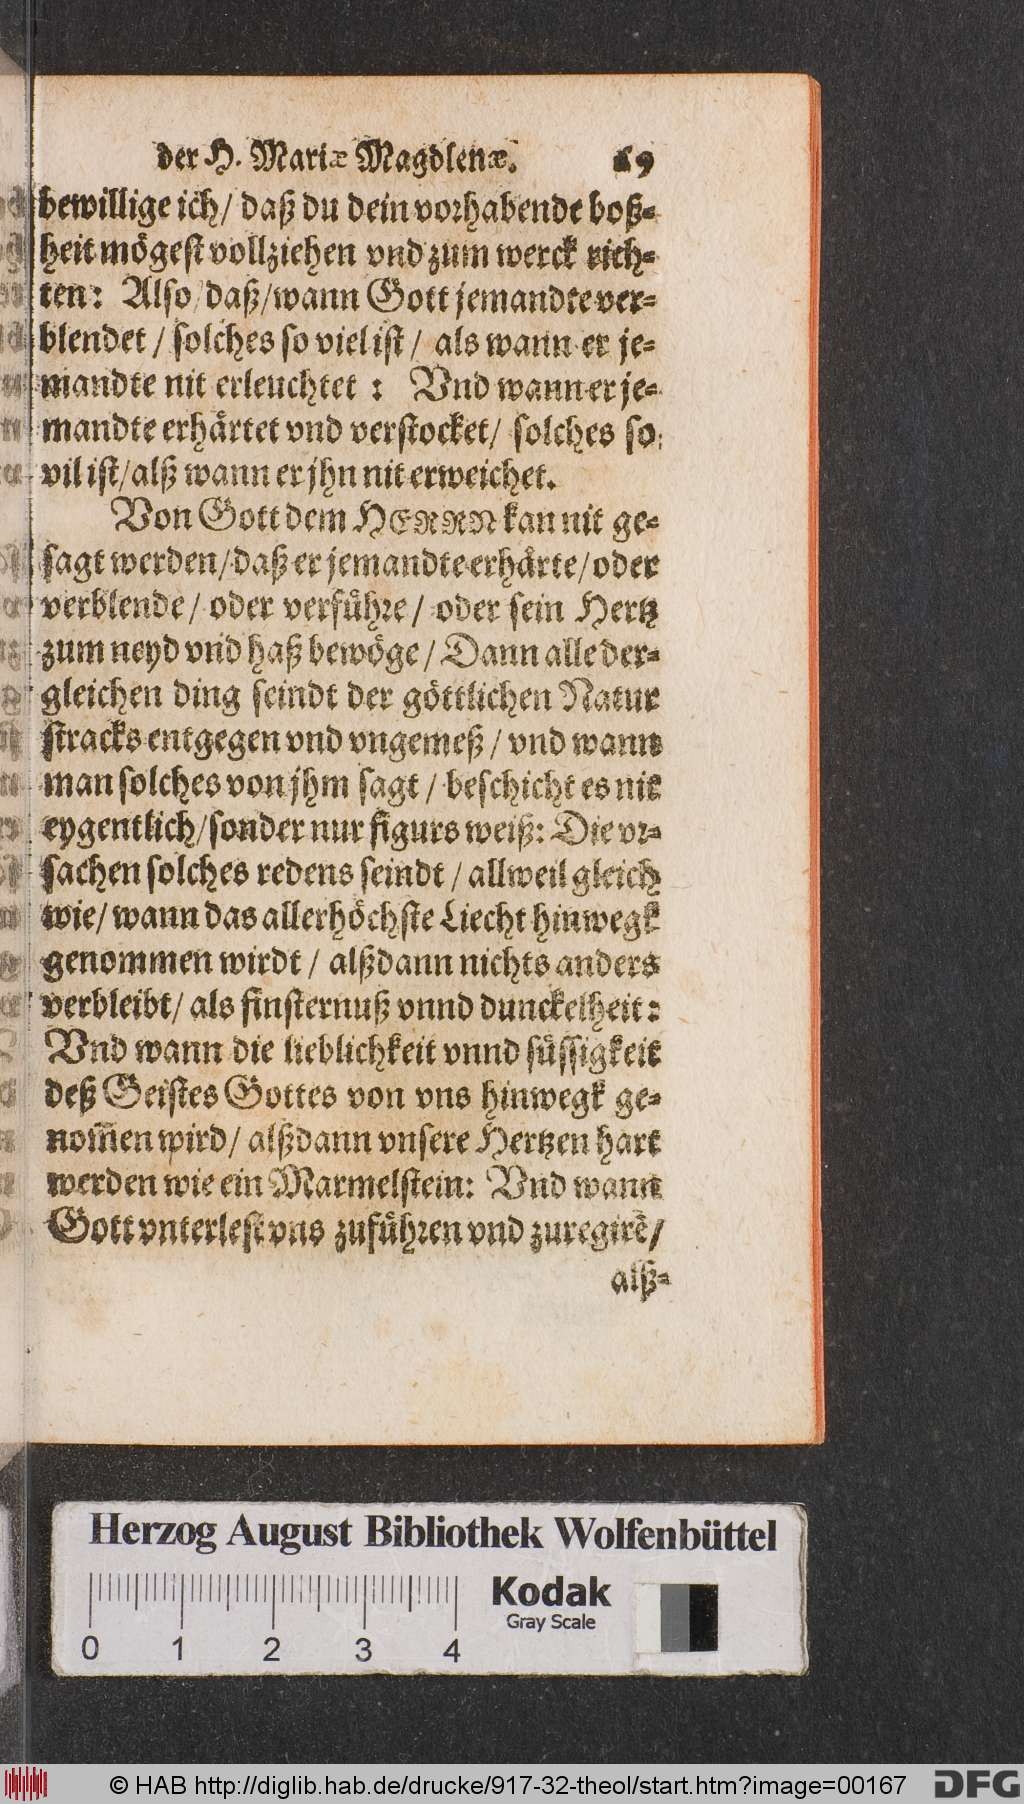 der H. Mariæ Magdlenæ. 69
bewillige ich/ daß du dein vorhabende boß-
heit mögest vollziehen vnd zum werck rich-
ten: Also/ daß/ wann Gott jemandte ver-
blendet / solches so viel ist / als wann er je-
mandte nit erleuchtet : Vnd wann er je-
mandte erhärtet vnd verstocket/ solches so
vil ist/ alß wann er jhn nit erweichet.
Von Gott dem HERRN kan nit ge-
sagt werden/ daß er jemandte erhärte/ oder
verblende/ oder verführe / oder sein Hertz
zum neyd vnd haß bewöge / Dann alle der-
gleichen ding seindt der göttlichen Natur
stracks entgegen vnd vngemeß / vnd wann
man solches von jhm sagt / beschicht es nit
eygentlich/ sonder nur figurs weiß: Die vr-
sachen solches redens seindt / allweil gleich
wie/ wann das allerhöchste Liecht hinwegk
genommen wirdt / alßdann nichts anders
verbleibt/ als finsternuß vnnd dunckelheit:
Vnd wann die lieblichkeit vnnd süssigkeit
deß Geistes Gottes von vns hinwegk ge-
nom̅en wird/ alßdann vnsere Hertzen hart
werden wie ein Marmelstein: Vnd wann
Gott vnterlest vns zuführen vnd zuregirẽ/
alß-
Herzog August Bibliothek Wolfenbüttel
Kodak
Gray Scale
0 1 2 3 4
© HAB http://diglib.hab.de/drucke/917-32-theol/start.htm?image=00167 DFG